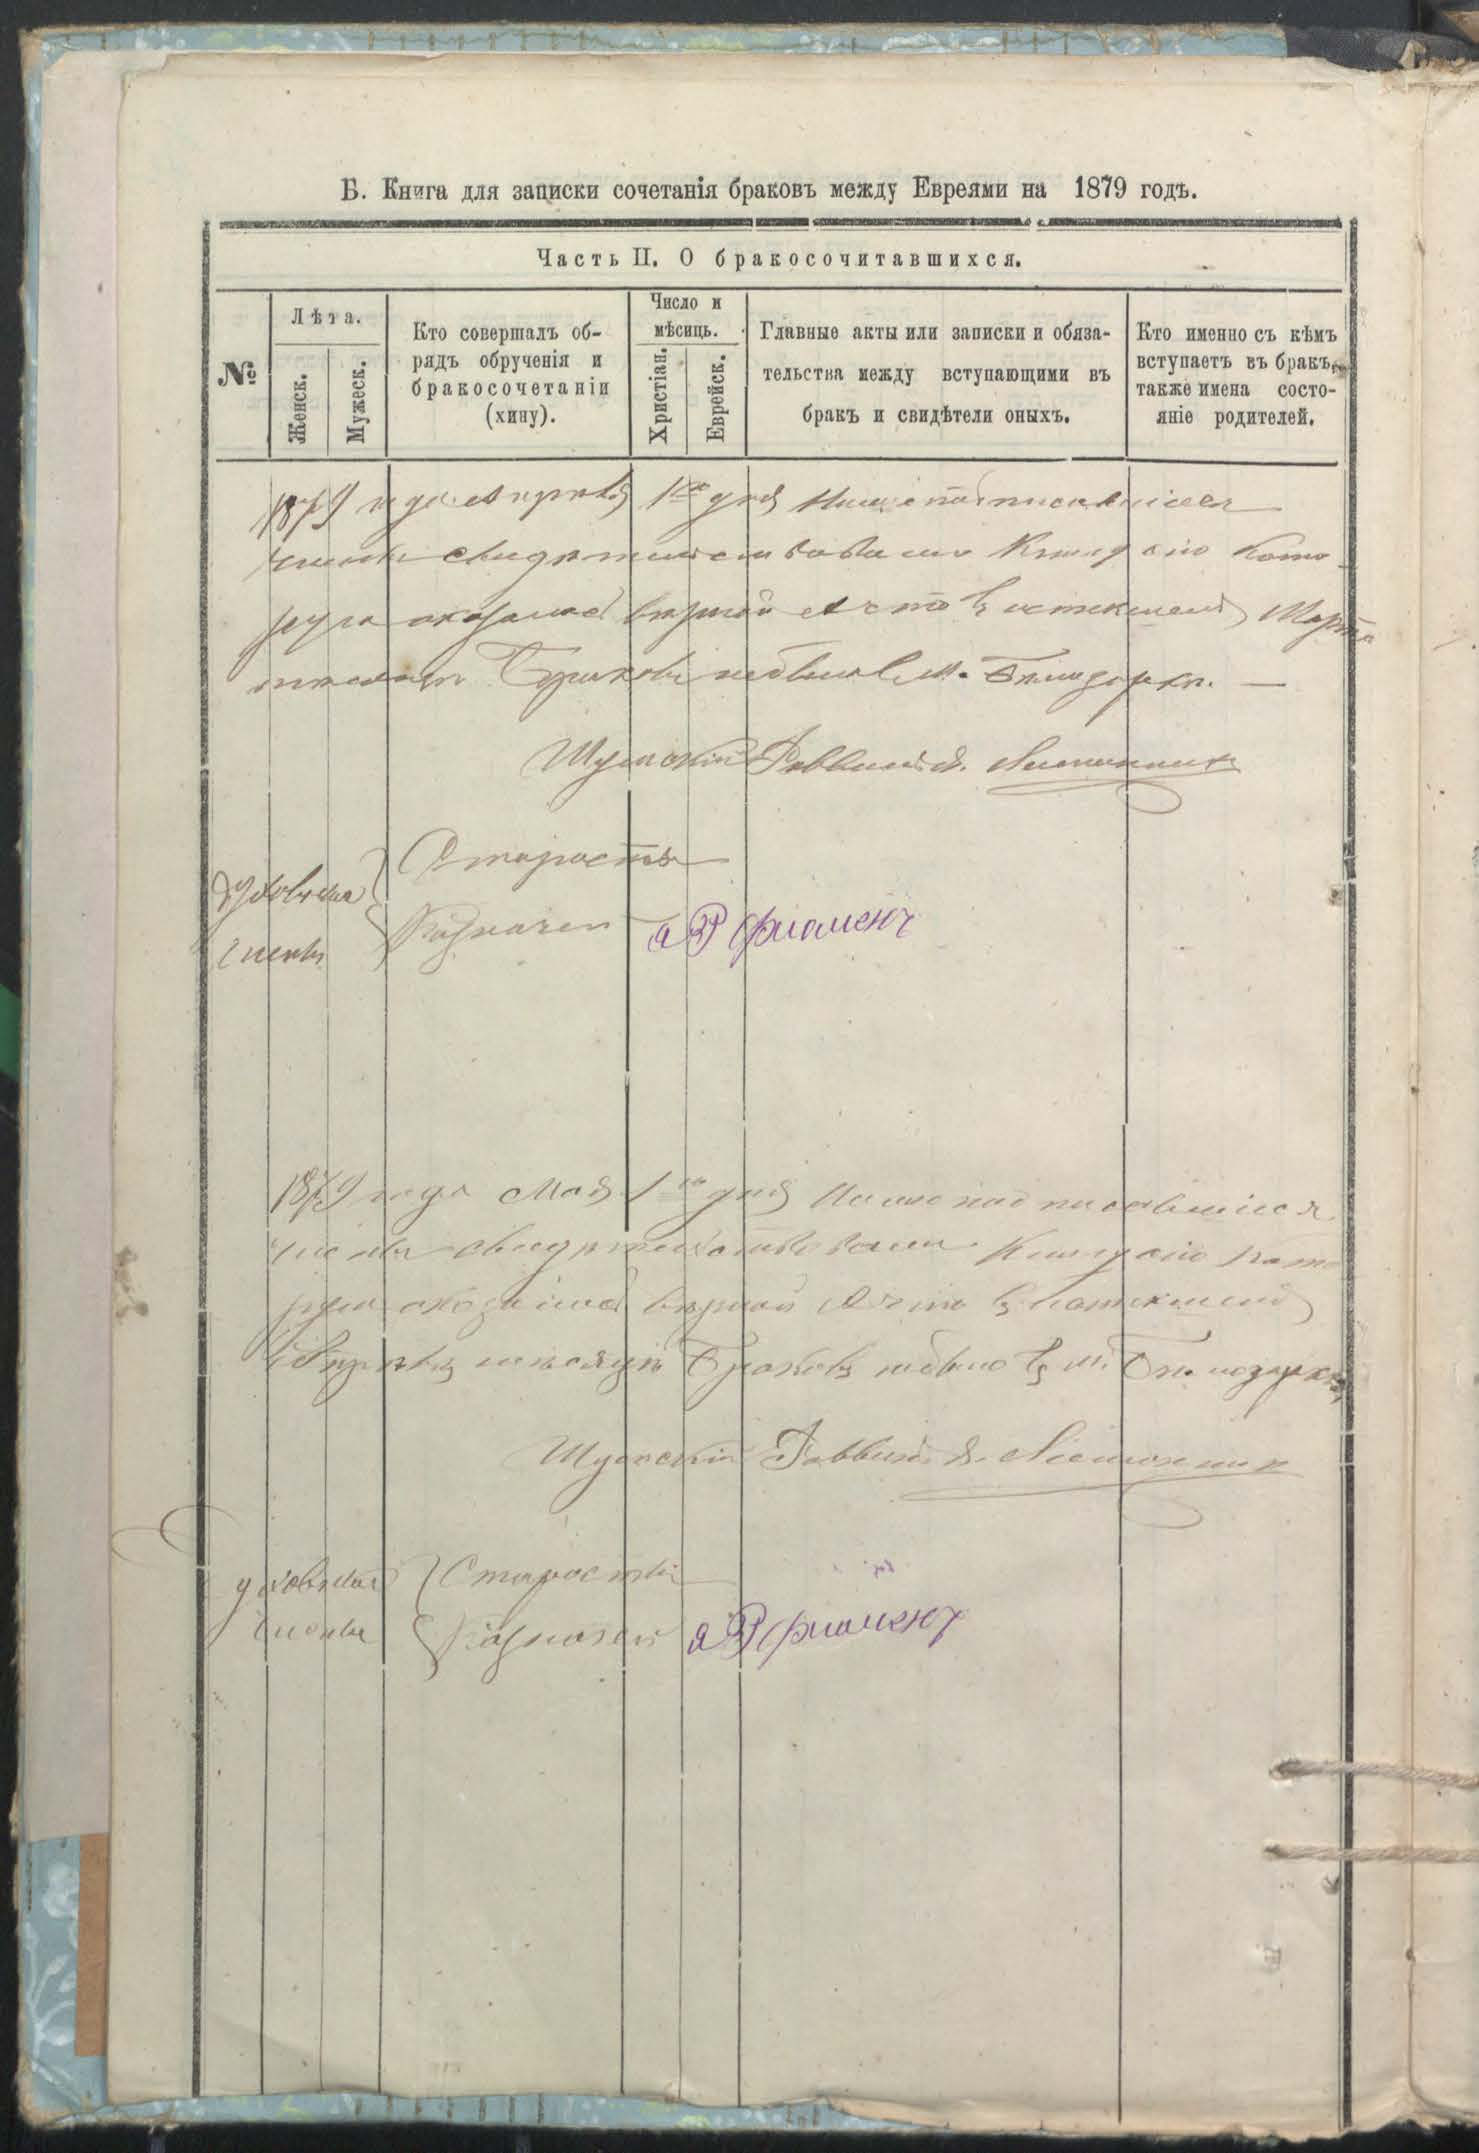 Б. Книга для записки сочетанія браковъ между Евреями на 1879 годъ.
Часть II. О бракосочитавшихся.
№
Лѣта.
Женск.
Мужеск.
Кто совершалъ об-
рядъ обрученія и
бракосочетаніи
(хину).
Число и
мѣсиць.
Христіан.
Еврейск.
Главные акты или записки и обяза-
тельства между вступающими въ
бракъ и свидѣтели оныхъ.
Кто именно съ кѣмъ
вступаетъ въ бракъ,
также имена состо-
яніе родителей.
1879 года Апрѣля 1го дня Ниже подписавшіеся
члены свидѣтельствовали Книгу сію кото-
рая оказалась вѣрной А что въ истекшемъ Мартѣ
мѣсяцѣ Браковъ небыло въ м. Бѣлозоркѣ. —
Шумскій Раввинъ
Духовныя
члены
Староста
Казначей
1879 года Мая 1го дня Ниже подписавшіеся
члены свидѣтельствовали Книгу сію кото
рая оказалась вѣрной А что въ истекшемъ
Апрѣлѣ мѣсяцѣ Браковъ небыло въ м. Бѣлозоркѣ
Шумскій Раввинъ
Духовныя
члены
Староста
Казначей